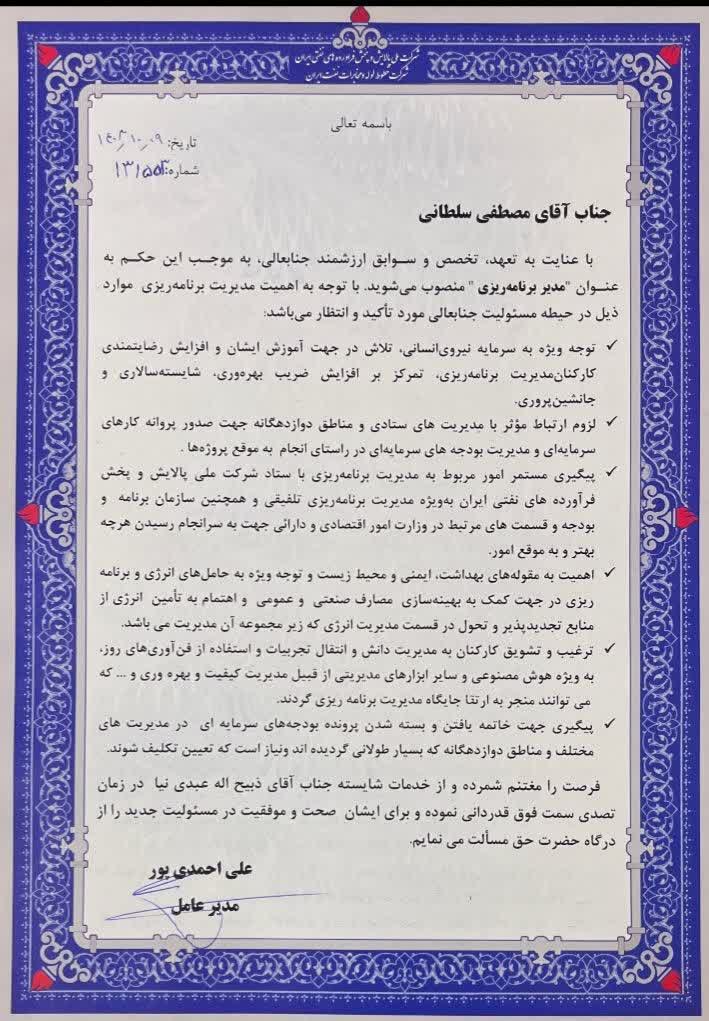 شرکت ملی پالایش و پخش فرآورده های نفتی ایران
شرکت خطوط لوله و مخابرات نفت ایران
باسمه تعالی
تاریخ:
شماره: ۱۳۱۵۵۳
جناب آقای مصطفی سلطانی
با عنایت به تعهد، تخصص و سـوابق ارزشمند جنابعالی، به موجـب این حکـم به
عنـوان "مدیر برنامه‌ریزی" منصوب می‌شوید. با توجه به اهمیت مدیریت برنامه‌ریزی موارد
ذیل در حیطه مسئولیت جنابعالی مورد تأکید و انتظار می‌باشد:
✓ توجه ویژه به سرمایه نیروی‌انسانی، تلاش در جهت آموزش ایشان و افزایش رضایتمندی
کارکنان‌مدیریت برنامه‌ریزی، تمرکز بر افزایش ضریب بهره‌وری، شایسته‌سالاری و
جانشین‌پروری.
✓ لزوم ارتباط مؤثر با مدیریت های ستادی و مناطق دوازدهگانه جهت صدور پروانه کارهای
سرمایه‌ای و مدیریت بودجه های سرمایه‌ای در راستای انجام به موقع پروژه‌ها .
✓ پیگیری مستمر امور مربوط به مدیریت برنامه‌ریزی با ستاد شرکت ملی پالایش و پخش
فرآورده های نفتی ایران به‌ویژه مدیریت برنامه‌ریزی تلفیقی و همچنین سازمان برنامه و
بودجه و قسمت های مرتبط در وزارت امور اقتصادی و دارائی جهت به سرانجام رسیدن هرچه
بهتر و به موقع امور.
✓ اهمیت به مقوله‌های بهداشت، ایمنی و محیط زیست و توجه ویژه به حامل‌های انرژی و برنامه
ریزی در جهت کمک به بهینه‌سازی مصارف صنعتی و عمومی و اهتمام به تأمین انرژی از
منابع تجدیدپذیر و تحول در قسمت مدیریت انرژی که زیر مجموعه آن مدیریت می باشد.
✓ ترغیب و تشویق کارکنان به مدیریت دانش و انتقال تجربیات و استفاده از فن‌آوری‌های روز،
به ویژه هوش مصنوعی و سایر ابزارهای مدیریتی از قبیل مدیریت کیفیت و بهره وری و ... که
می توانند منجر به ارتقا جایگاه مدیریت برنامه ریزی گردند.
✓ پیگیری جهت خاتمه یافتن و بسته شدن پرونده بودجه‌های سرمایه ای در مدیریت های
مختلف و مناطق دوازدهگانه که بسیار طولانی گردیده اند ونیاز است که تعیین تکلیف شوند.
فرصت را مغتنم شمرده و از خدمات شایسته جناب آقای ذبیح اله عبدی نیا در زمان
تصدی سمت فوق قدردانی نموده و برای ایشان صحت و موفقیت در مسئولیت جدید را از
درگاه حضرت حق مسألت می نمایم.
علی احمدی پور
مدیر عامل